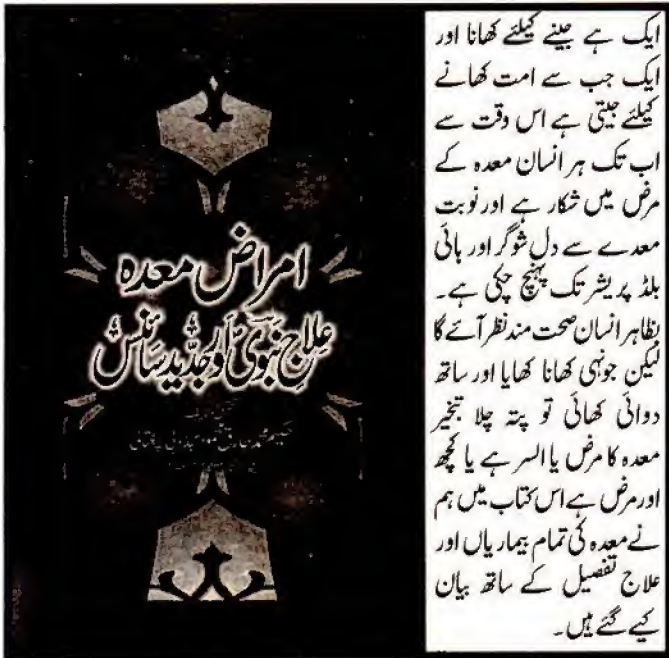 امراض معدہ
علاج نبویؐ اور جدید سائنس
حکیم محمد طارق محمود چغتائی
ایک ہے جینے کیلئے کھانا اور
ایک جب سے امت کھانے
کیلئے جیتی ہے اس وقت سے
اب تک ہر انسان معدہ کے
مرض میں شکار ہے اور نوبت
معدے سے دل شوگر اور ہائی
بلڈ پریشر تک پہنچ چکی ہے۔
بظاہر انسان صحت مند نظر آئے گا
لیکن جونہی کھانا کھایا اور ساتھ
دوائی کھائی تو پتہ چلا تبخیر
معدہ کا مرض یا السر ہے یا کچھ
اور مرض ہے اس کتاب میں ہم
نے معدہ کی تمام بیماریاں اور
علاج تفصیل کے ساتھ بیان
کیے گئے ہیں۔